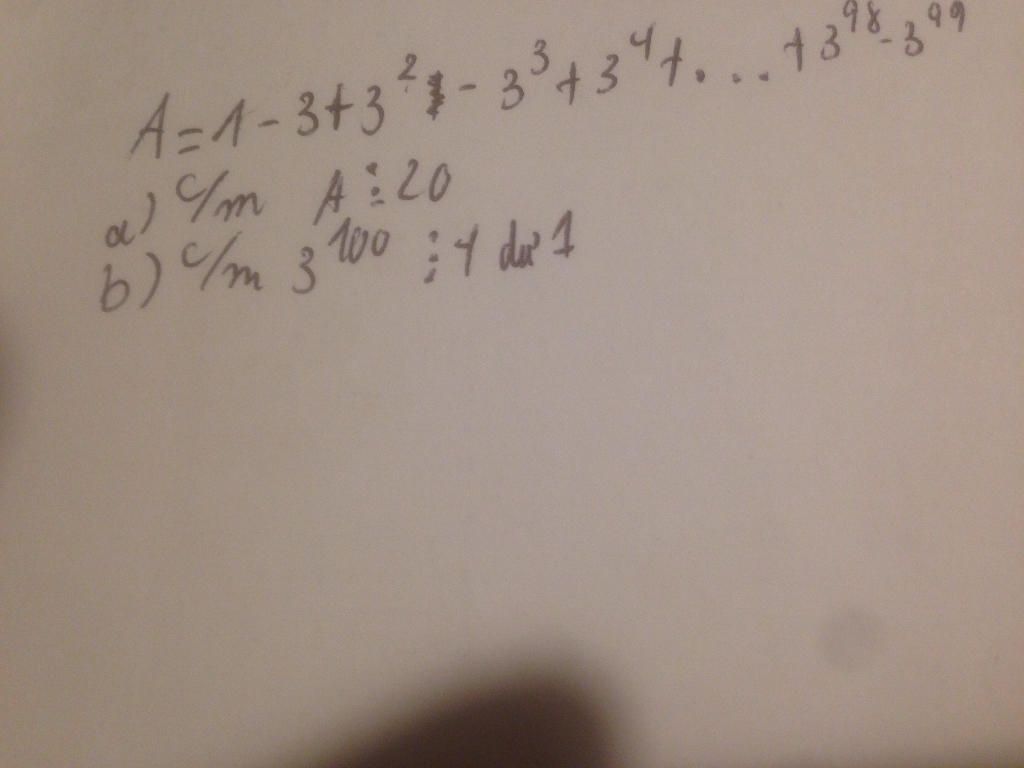 A = 1 - 3 + 3² - 3³ + 3⁴ + ... + 3⁹⁸ - 3⁹⁹
a) C/m A ⋮ 20
b) C/m 3¹⁰⁰ ⋮ 4 dư 1